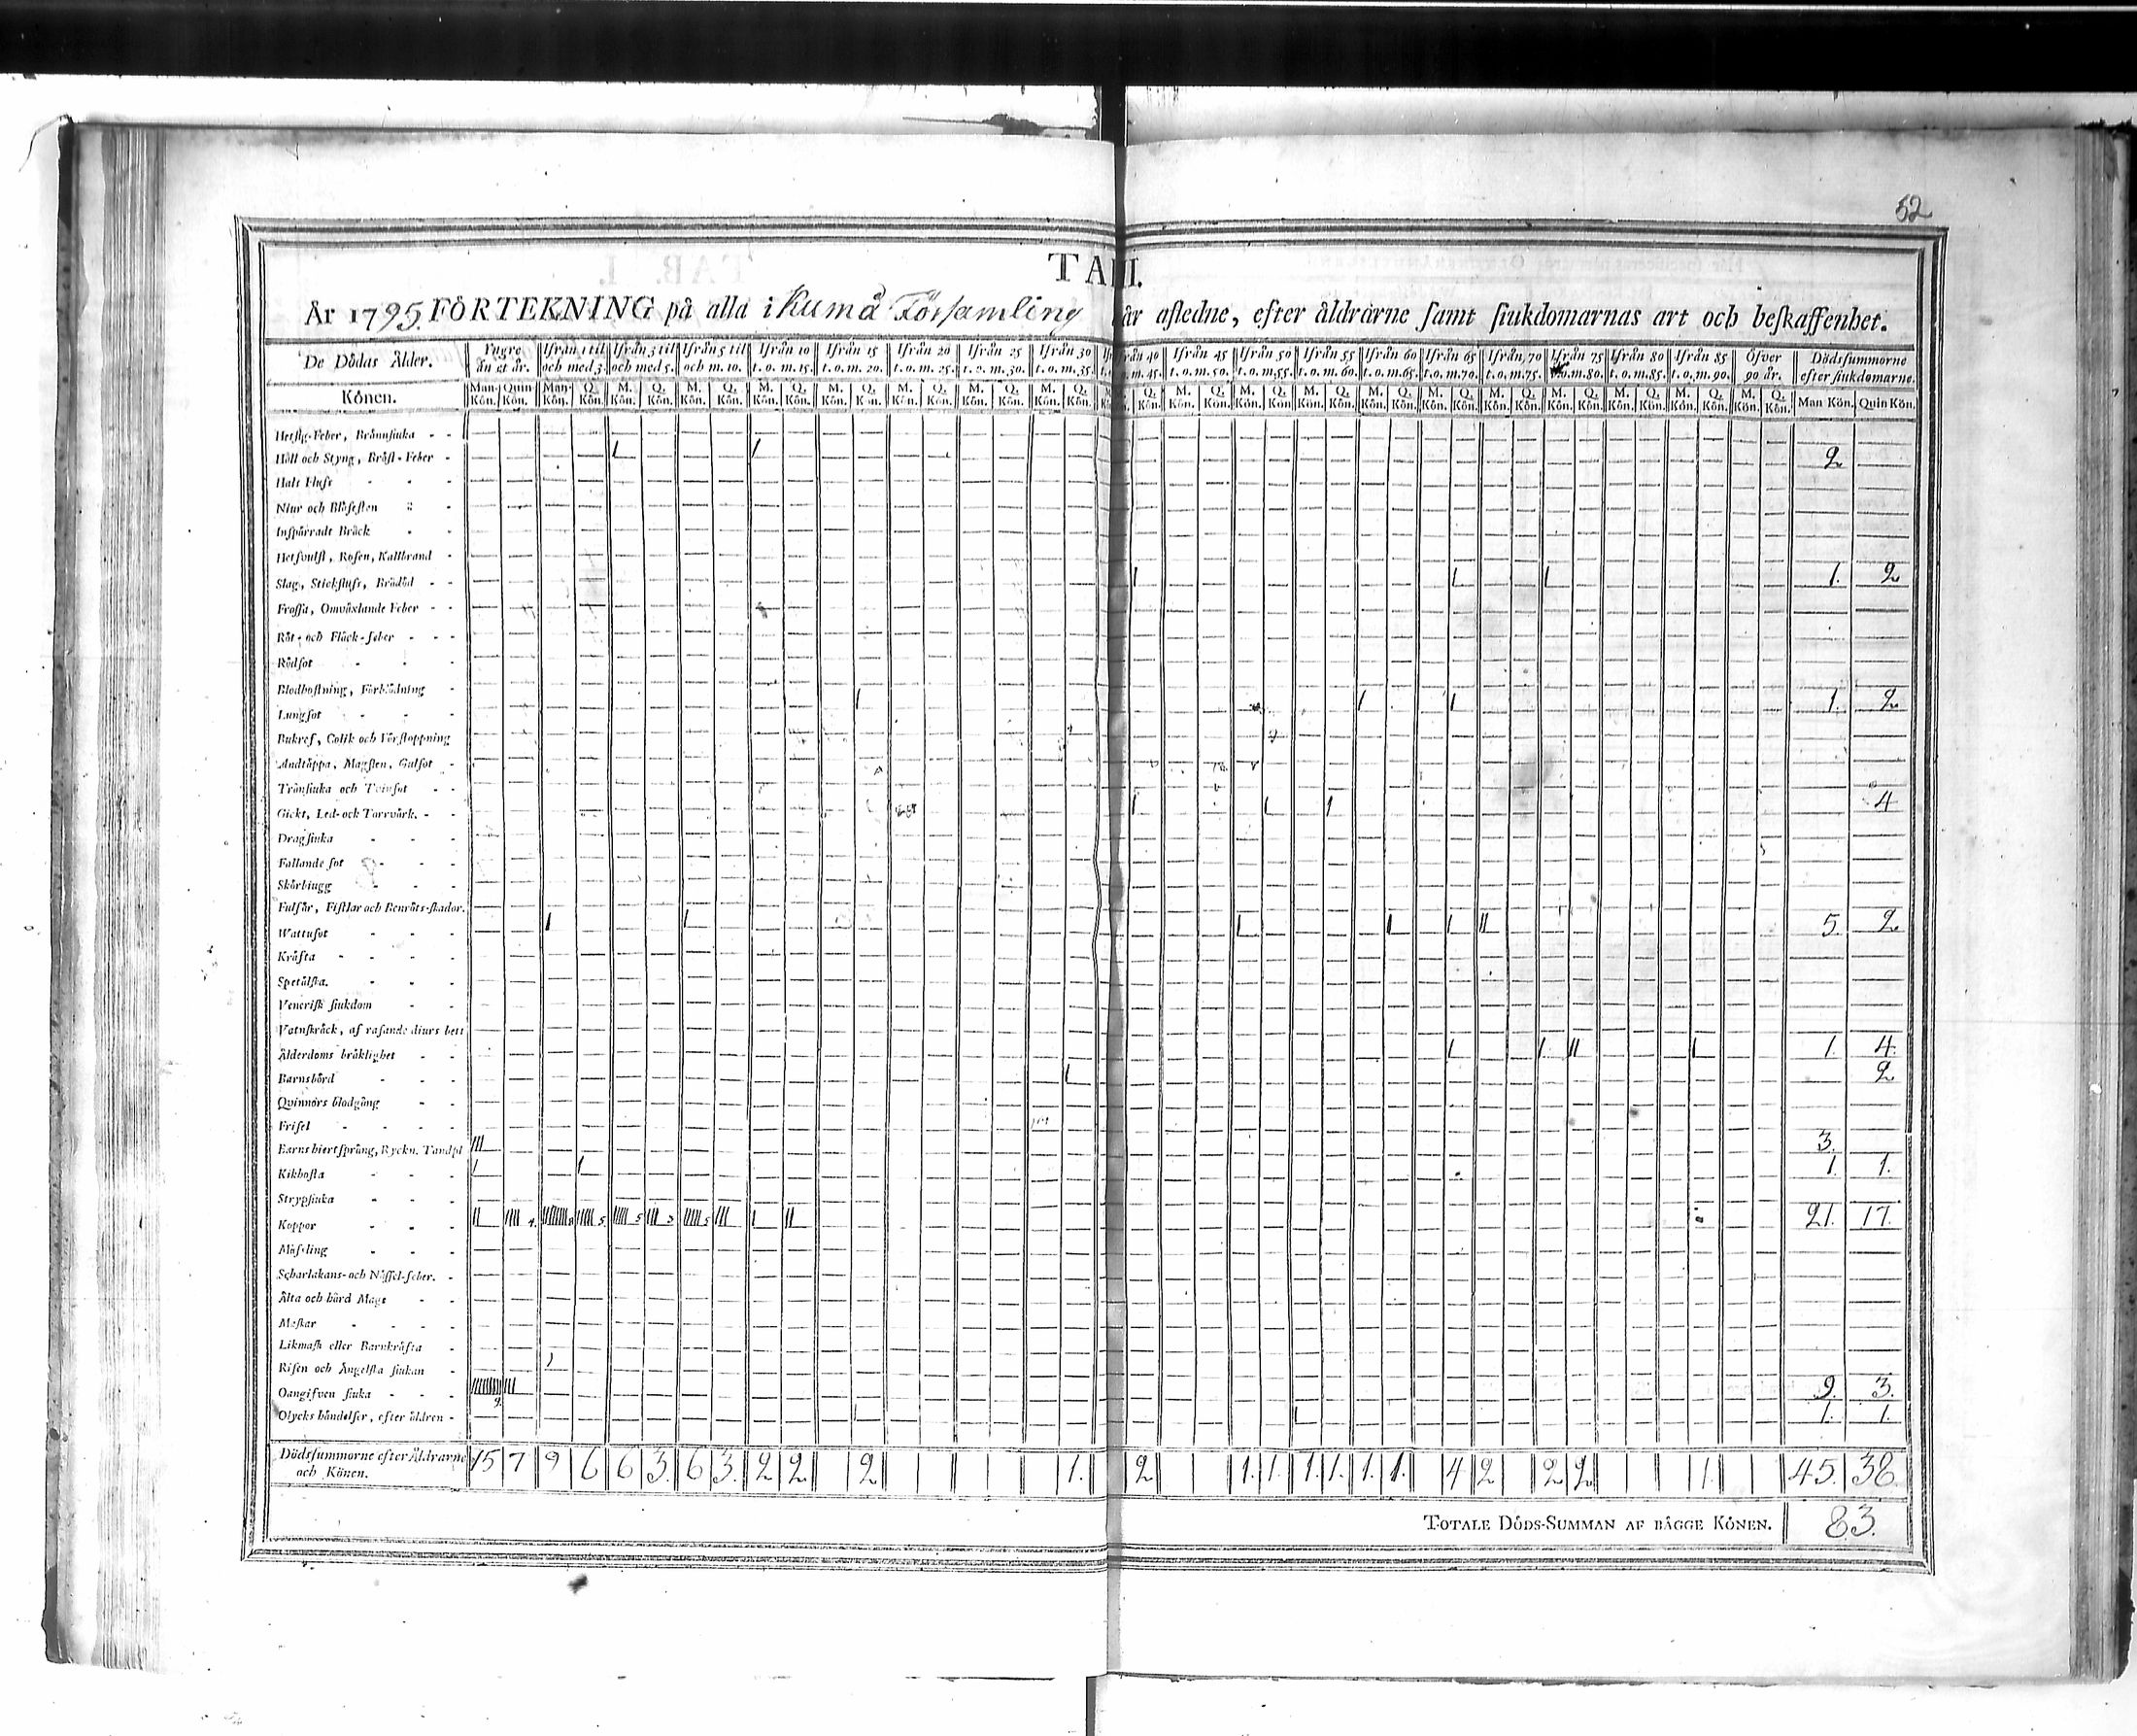 52
TAB. II.
År 1795. FÖRTEKNING på alla i Kumå Församling år afledne, efter åldrarne samt siukdomarnas art och beskaffenhet.
De Dödas Ålder. Yngre än et år. Ifrån 1 til och med 3. Ifrån 3 til och med 5. Ifrån 5 til och m. 10. Ifrån 10 t. o. m. 15. Ifrån 15 t. o. m. 20. Ifrån 20 t. o. m. 25. Ifrån 25 t. o. m. 30. Ifrån 30 t. o. m. 35. Ifrån 40 t. o. m. 45. Ifrån 45 t. o. m. 50. Ifrån 50 t. o. m. 55. Ifrån 55 t. o. m. 60. Ifrån 60 t. o. m. 65. Ifrån 65 t. o. m. 70. Ifrån 70 t. o. m. 75. Ifrån 75 t. o. m. 80. Ifrån 80 t. o. m. 85. Ifrån 85 t. o. m. 90. Öfver 90 år. Dödssummorne efter siukdomarne.
Könen. Man Kön. Quin Kön. Man Kön. Q. Kön. M. Kön. Q. Kön. M. Kön. Q. Kön. M. Kön. Q. Kön. M. Kön. Q. Kön. M. Kön. Q. Kön. M. Kön. Q. Kön. M. Kön. Q. Kön. Q. Kön. M. Kön. Q. Kön. M. Kön. Q. Kön. M. Kön. Q. Kön. M. Kön. Q. Kön. M. Kön. Q. Kön. M. Kön. Q. Kön. M. Kön. Q. Kön. M. Kön. Q. Kön. M. Kön. Q. Kön. M. Kön. Q. Kön. Man Kön. Quin Kön.
Hetsig-Feber, Brännsiuka
Håll och Styng, Bröst-Feber 1 1 2
Hals Fluss
Niur och Blåsesten
Inspärradt Bräck
Hetsvulst, Rosen, Kallbrand
Slag, Stickfluss, Brådöd 1 1 1 1. 2
Frossa, Omväxlande Feber
Röt- och Fläck-feber
Rödsot
Blodhostning, Förblödning
Lungsot 1 1 1 1. 2
Bukref, Colik och Förstoppning
Andtäppa, Magsten, Gulsot
Trånsiuka och Tvinsot
Gickt, Led- och Torrvärk. 1 1 1 4
Dragsiuka
Fallande sot
Skörbiugg
Fulsår, Fistlar och Benröts-skador.
Wattusot 1 1 1 1 1 11 5. 2.
Kräfta
Spetälska.
Venerisk siukdom
Vatnskräck, af rasande diurs bett
Ålderdoms bräklighet 1 1 11 1 1. 4.
Barnsbörd 1 2
Qvinnors blodgång
Frisel
Barns hiertsprång, Ryckn. Tandpl 111 3.
Kikhosta 1 1 1. 1.
Strypsiuka
Koppor 11 1111 4. 8 5. 5 3 5 111 1 11 21. 17.
Mässling
Scharlakans- och Nässel-feber.
Älta och hård Mage
Maskar
Likmask eller Barnkräfta
Risen och Ängelska siukan
Oangifven siuka 9. 111 9. 3.
Olycks händelser, efter äldren 1. 1.
Dödssummorne efter Åldrarne och Könen. 15 7 9 6 6 3. 6 3. 2 2 2 1. 2 1. 1. 1. 1. 1. 1. 4 2 2 2 1. 45. 38.
TOTALE DÖDS-SUMMAN AF BÄGGE KÖNEN. 83.